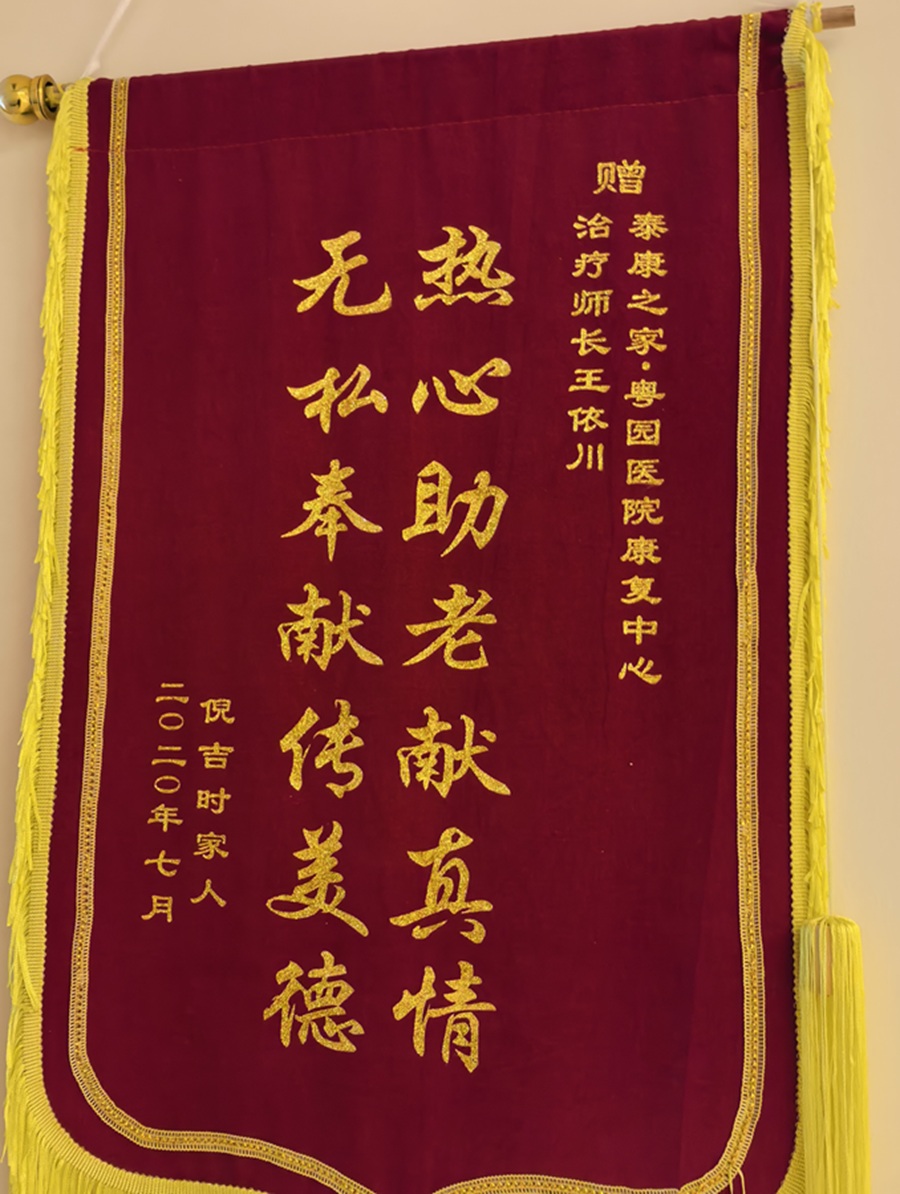 赠
泰康之家·粤园医院康复中心
治疗师长王依川
热心助老献真情
无私奉献传美德
倪吉时家人
二〇二〇年七月